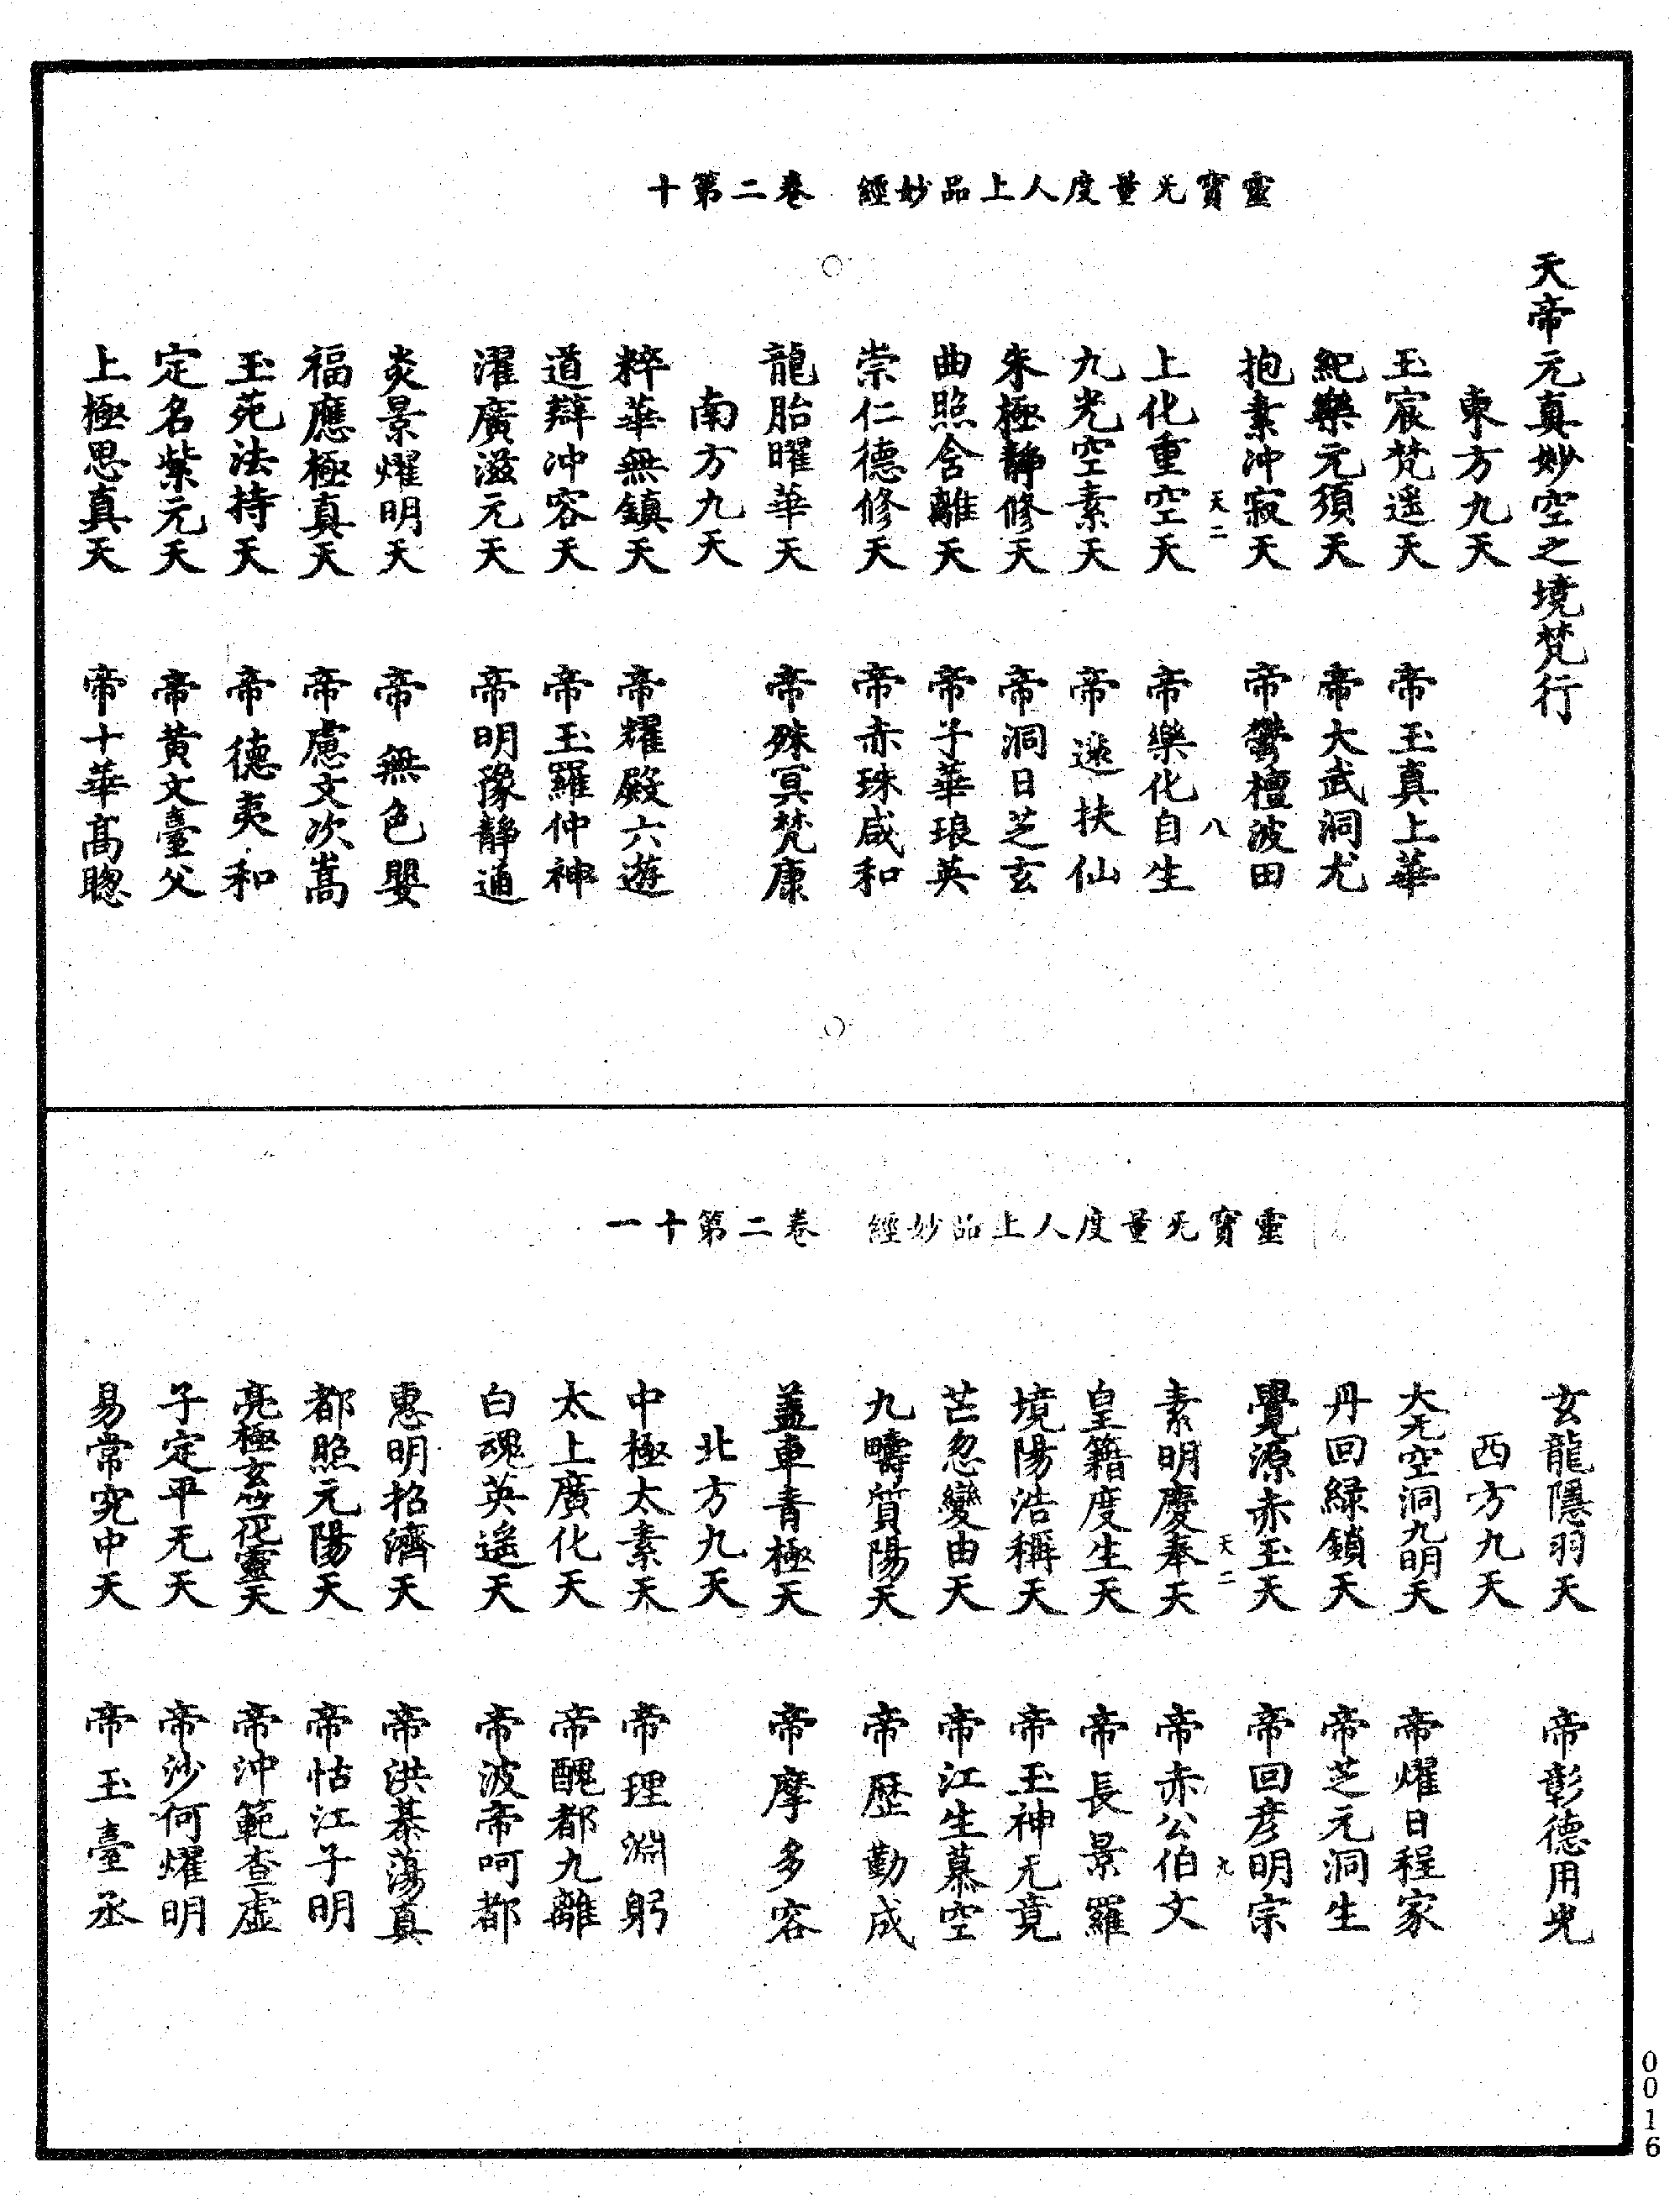 靈寶无量度人上品妙經　卷二第十
天帝元真妙空之境梵行
東方九天
玉宸梵遥天　帝玉真上華
紀樂元須天　帝大武洞尤
抱素沖寂天　帝鬱檀波田
天二　八
上化重空天　帝樂化自生
九光空素天　帝逯扶仙
朱極静修天　帝洞日芝玄
曲照含離天　帝子華琅英
崇仁德修天　帝赤珠咸和
龍胎曜華天　帝殊冥梵康
南方九天
粹華無鎮天　帝耀殿六遊
道辯沖容天　帝玉羅仲神
濯廣滋元天　帝明豫静通
炎景燿明天　帝無色嬰
福應極真天　帝慮文次嵩
玉苑法持天　帝德夷和
定名紫元天　帝黄文臺父
上極思真天　帝十華髙聦
靈寶无量度人上品妙經　卷二第十一
玄龍隱羽天　帝彰德用光
西方九天
大无空洞九明天　帝燿日程家
丹回緑鎖天　帝芝元洞生
覺源赤玉天　帝回彦明宗
天二　九
素明慶奉天　帝赤公伯文
皇籍度生天　帝長景羅
境陽浩稱天　帝玉神无竟
芒忽變由天　帝江生慕空
九疇質陽天　帝歷勤成
蓋車青極天　帝摩多容
北方九天
中極太素天　帝理淵躬
太上廣化天　帝醜都九離
白魂英遥天　帝波帝呵都
惠明招濟天　帝洪綦蕩真
都照元陽天　帝怙江子明
亮極玄竺化靈天　帝沖範查虚
子定平无天　帝沙何燿明
易常究中天　帝玉臺丞
0016